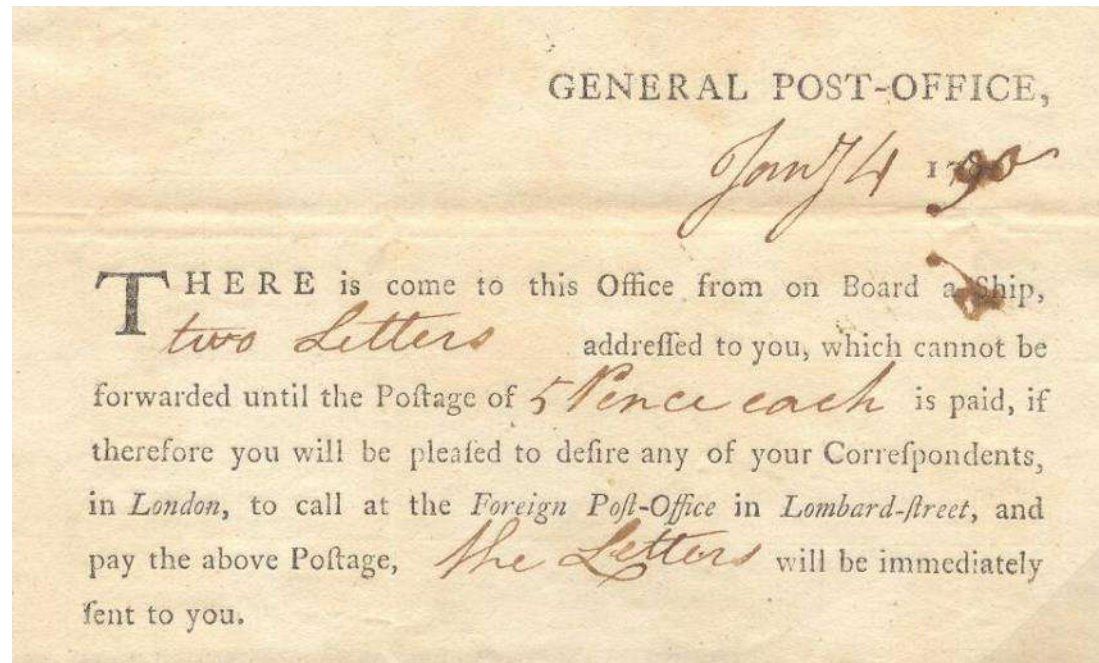 GENERAL POST-OFFICE,
Jany 4 1790
THERE is come to this Office from on Board a Ship,
two Letters addreſſed to you, which cannot be
forwarded until the Poſtage of 5 Pence each is paid, if
therefore you will be pleaſed to deſire any of your Correſpondents,
in London, to call at the Foreign Poſt-Office in Lombard-ſtreet, and
pay the above Poſtage, the Letters will be immediately
ſent to you.